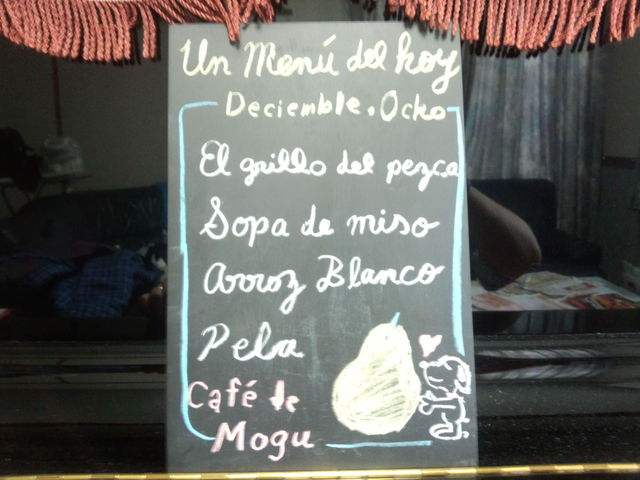 Un Menú del hoy
Deciemble. Ocho
El grillo del pezca
Sopa de miso
Arroz Blanco
Pela
Café de
Mogu